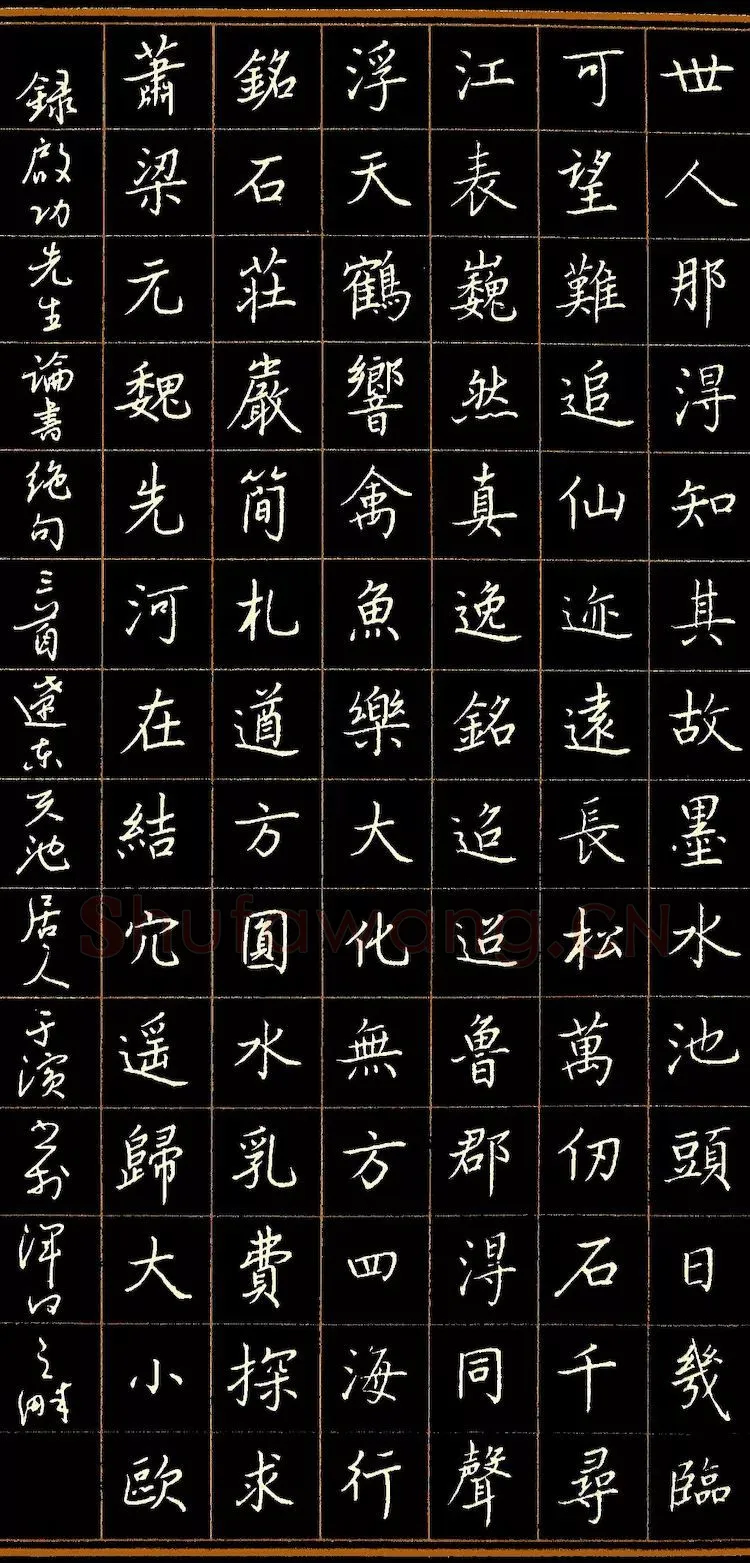 世人那得知其故墨水池頭日幾臨
可望難追仙迹遠長松萬仞石千尋
江表巍然真逸銘迢迢魯郡得同聲
浮天鶴響禽魚樂大化無方四海行
銘石莊嚴簡札遒方圓水乳費探求
蕭梁元魏先河在結穴遥歸大小歐
録啟功先生論書絶句三首遼東天池居人于濱書於渾江之畔
Shufawang.CN